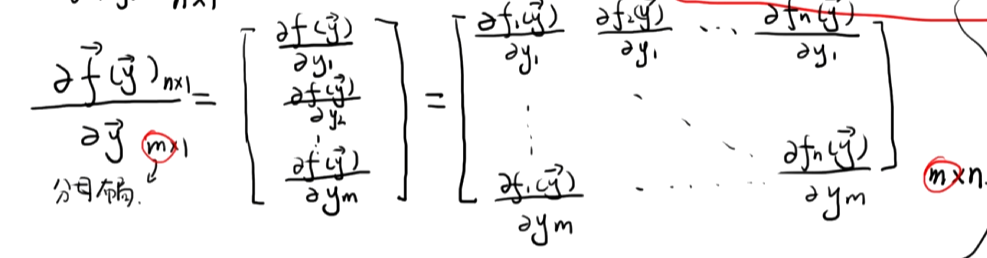 n×1
∂f⃗(y⃗)ₙₓ₁ / ∂y⃗ m×1 = [ ∂f(y⃗)/∂y₁ ∂f(y⃗)/∂y₂ ⋮ ∂f(y⃗)/∂yₘ ] = [ ∂f₁(y⃗)/∂y₁ ∂f₂(y⃗)/∂y₁ ⋯ ∂fₙ(y⃗)/∂y₁ ⋮ ⋱ ∂f₁(y⃗)/∂yₘ ⋯ ∂fₙ(y⃗)/∂yₘ ] m×n.
分母布局.